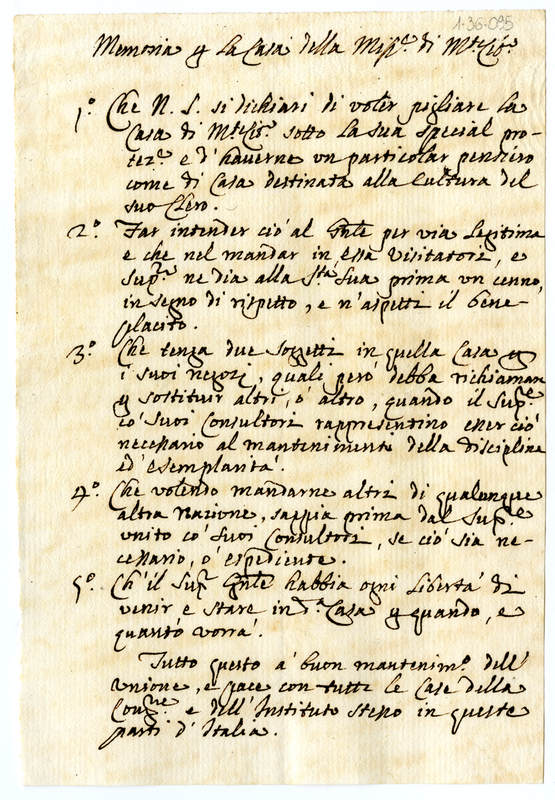 1-36-095
Memoria p la Casa della Miss.e di M.te Cit.o
1.o Che N. S. si dichiari di voler pigliare la
Casa di M.te Cit.o sotto la sua special pro-
tez.e e d'haverne un particolar pensiero
come di Casa destinata alla Cultura del
suo Clero.
2.o Far intender ciò al Gñle per via legitima
e che nel mandar in essa Visitatori, e
Sup.ri ne dia alla S.tà Sua prima un cenno,
in segno di rispetto, e n'aspetti il bene-
placito.
3.o Che tenga due soggetti in quella Casa p
i suoi negozi, quali però debba richiamare
p sostituir altri, ò altro, quando il Sup.re
co' suoi Consultori rappresentino esser ciò
necessario al mantenimento della disciplina
ed' esemplarità.
4.o Che volendo mandarne altri di qualunque
altra nazione, sappia prima dal Sup.re
unito co' suoi Consultori, se ciò sia ne-
cessario, ò espediente.
5.o Ch'il Sup.r Gñle habbia ogni libertà di
venir e stare in d.a Casa p quando, e
quanto vorrà.
Tutto questo a' buon mantenim.o dell'
unione, e pace con tutte le Case della
Cong.ne e dell'Instituto stesso in queste
parti d'Italia.